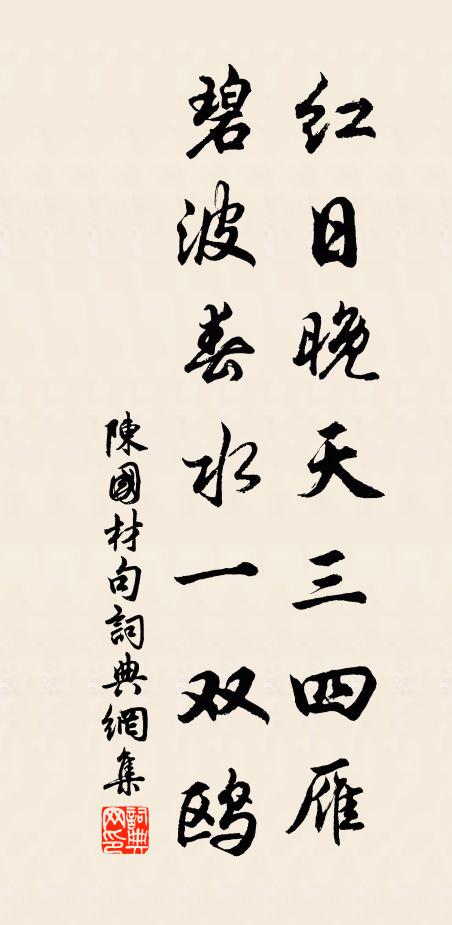 红日晚天三四雁
碧波春水一双鸥
陳國材句詞典網集
詞典网印